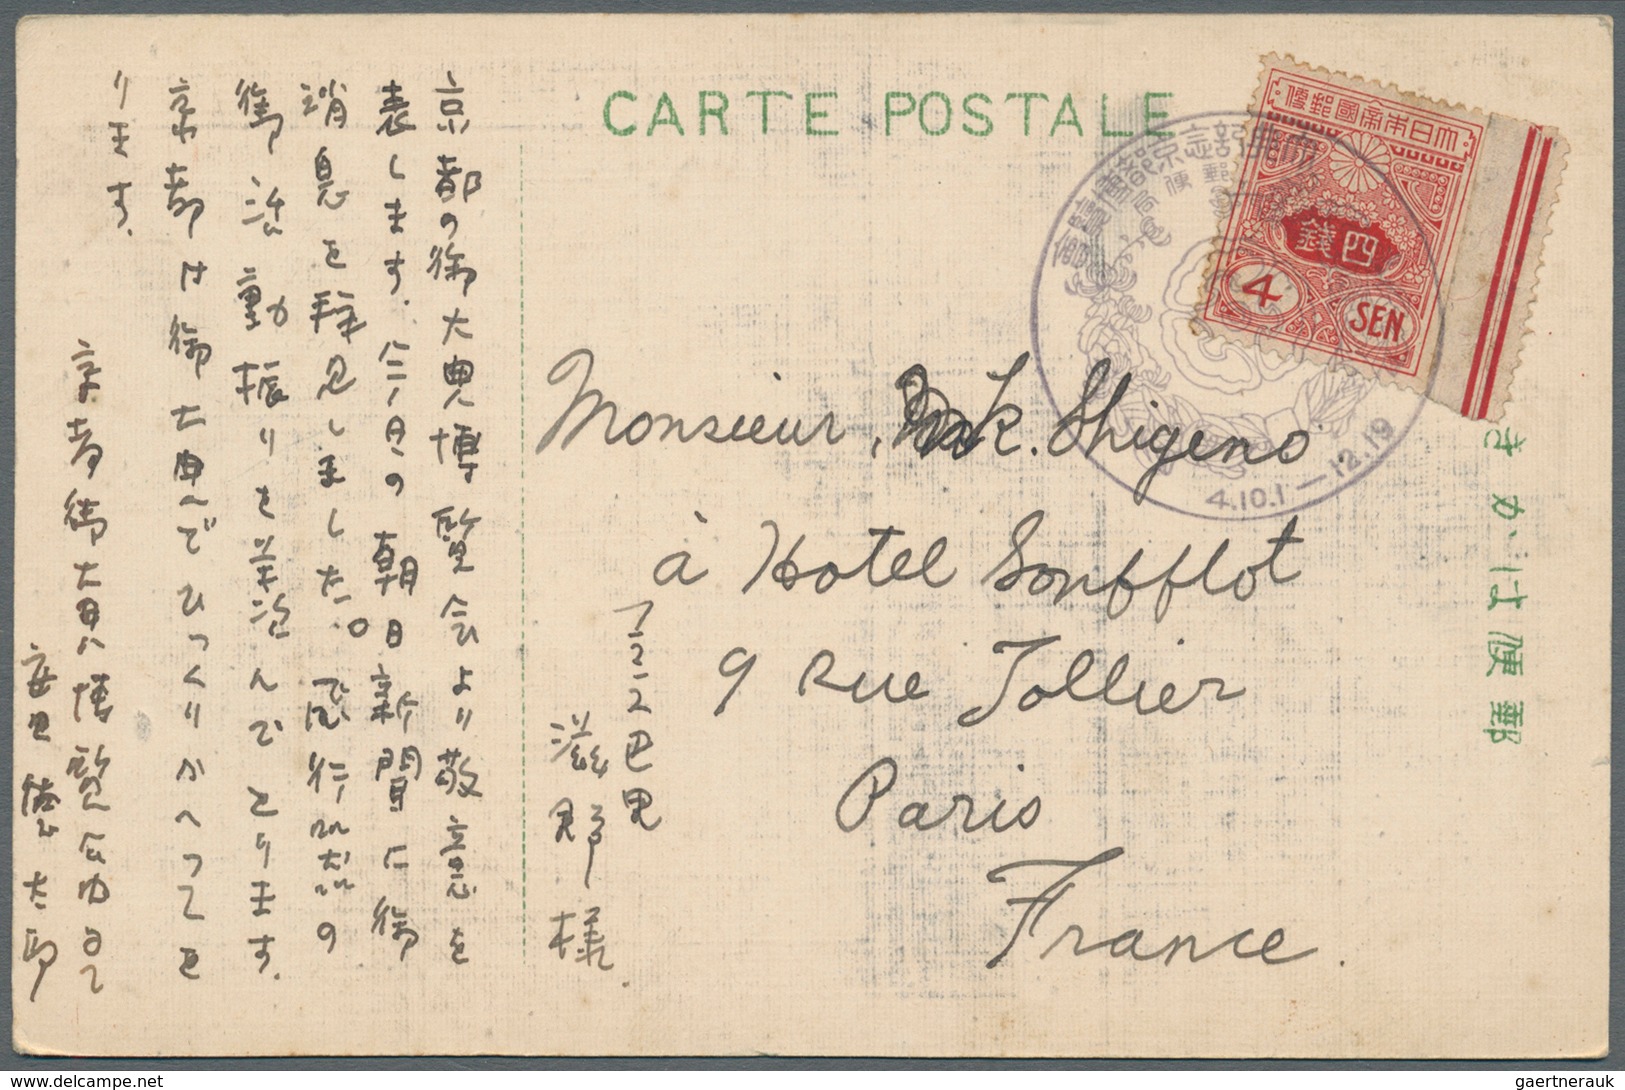 CARTE POSTALE
大日本帝國郵便
四錢
4
SEN.
4.10.1—12.19
きかは便郵
Monsieur, K. Shigeno
à Hotel Soufflot
9 Rue Tollier
Paris
France.
フランス巴里
滋野様.
京都の御大典博覧会より敬意を
表します. 今日の朝日新聞に御
消息を拝見しました。飛行家の
御活動振りを喜んでとります.
京都は御大典でひっくりかへってを
ります.
京都御大典博覧会内にて
徳太郎
gaertnerauk